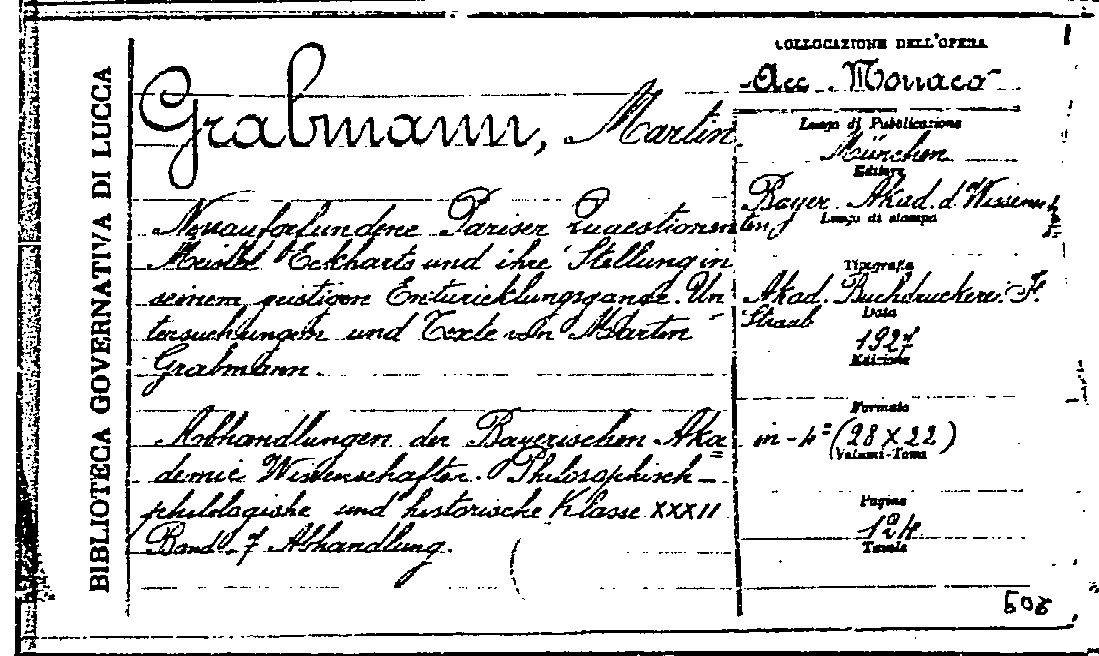 BIBLIOTECA GOVERNATIVA DI LUCCA
Grabmann, Martin
Neuaufgefundene Pariser Quaestionen
Meister Eckharts und ihre Stellung in
seinem geistigen Entwicklungsgange. Un
tersuchungen und Texte von Martin
Grabmann.
Abhandlungen der Bayerischen Aka=
demie Wissenschaften. Philosophisch-
philologishe und historische Klasse XXXII
Band. 7 Abhandlung.
COLLOCAZIONE DELL'OPERA
Acc. Monaco
Luogo di Pubblicazione
München
Editore
Bayer. Akad. d. Wissensch
Luogo di stampa
Tipografia
Akad. Buchdruckerei F.
Straub
Data
1927
Edizione
Formato
in-4º (28 X 22)
Volumi-Tomo
Pagine
124
Tavole